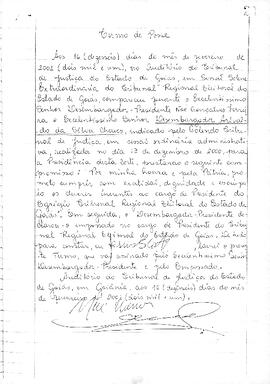 Termo de Posse
Aos 16 (dezesseis) dias do mês de fevereiro de
2001 (dois mil e um), no Auditório do Tribunal
de Justiça do Estado de Goiás, em Sessão Solene
Extraordinária do Tribunal Regional Eleitoral do
Estado de Goiás, compareceu perante o Excelentíssimo
Senhor Desembargador-Presidente Noé Gonçalves Ferrei-
ra, o Excelentíssimo Senhor Desembargador
da Silva Chaves, indicado pelo Tribu-
nal de Justiça, em sessão ordinária administrati-
va, realizada no dia 13 de dezembro de 2000, para
a Presidência desta Corte, prestando o seguinte com-
promisso: " Por minha honra e pela Pátria, pro-
meto cumprir com exatidão, dignidade e escrúpu-
lo os deveres inerentes ao cargo de Presidente do
Egrégio Tribunal Regional Eleitoral do Estado de
Goiás". Em seguida, o Desembargador-Presidente de-
clarou-o empossado no cargo de Presidente do Tribu-
nal Regional Eleitoral do Estado de Goiás.
para constar, eu lavrei o presen-
te Termo, que vai assinado pelo Excelentíssimo Senhor
Desembargador-Presidente e pelo Empossado.
Auditório do Tribunal de Justiça do Estado de
Goiás, em Goiânia, aos 16 (dezesseis) dias do mês
de fevereiro de 2001 (dois mil e um).